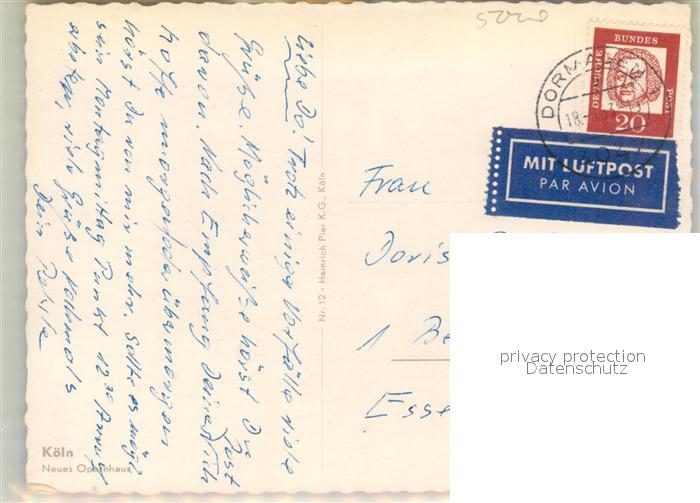 5000
Liebe Do! Trotz einiger Vorfälle viele
Grüße. Möglicherweise hörst Du
davon. Nach Empfang Deiner Post
hoffe morgen oder übermorgen
hörst Du von mir mehr. Sollte es mögl.
sein Montagmittag Punkt 12³⁰ Anruf
viele Grüße nochmals
Dein
Köln
Neues Opernhaus
Nr. 12 · Heinrich Pier K.G., Köln
DEUTSCHE BUNDES POST
20
DORMAGEN
18.
MIT LUFTPOST
PAR AVION
Frau
Doris
1 Be
Esse
privacy protection
Datenschutz